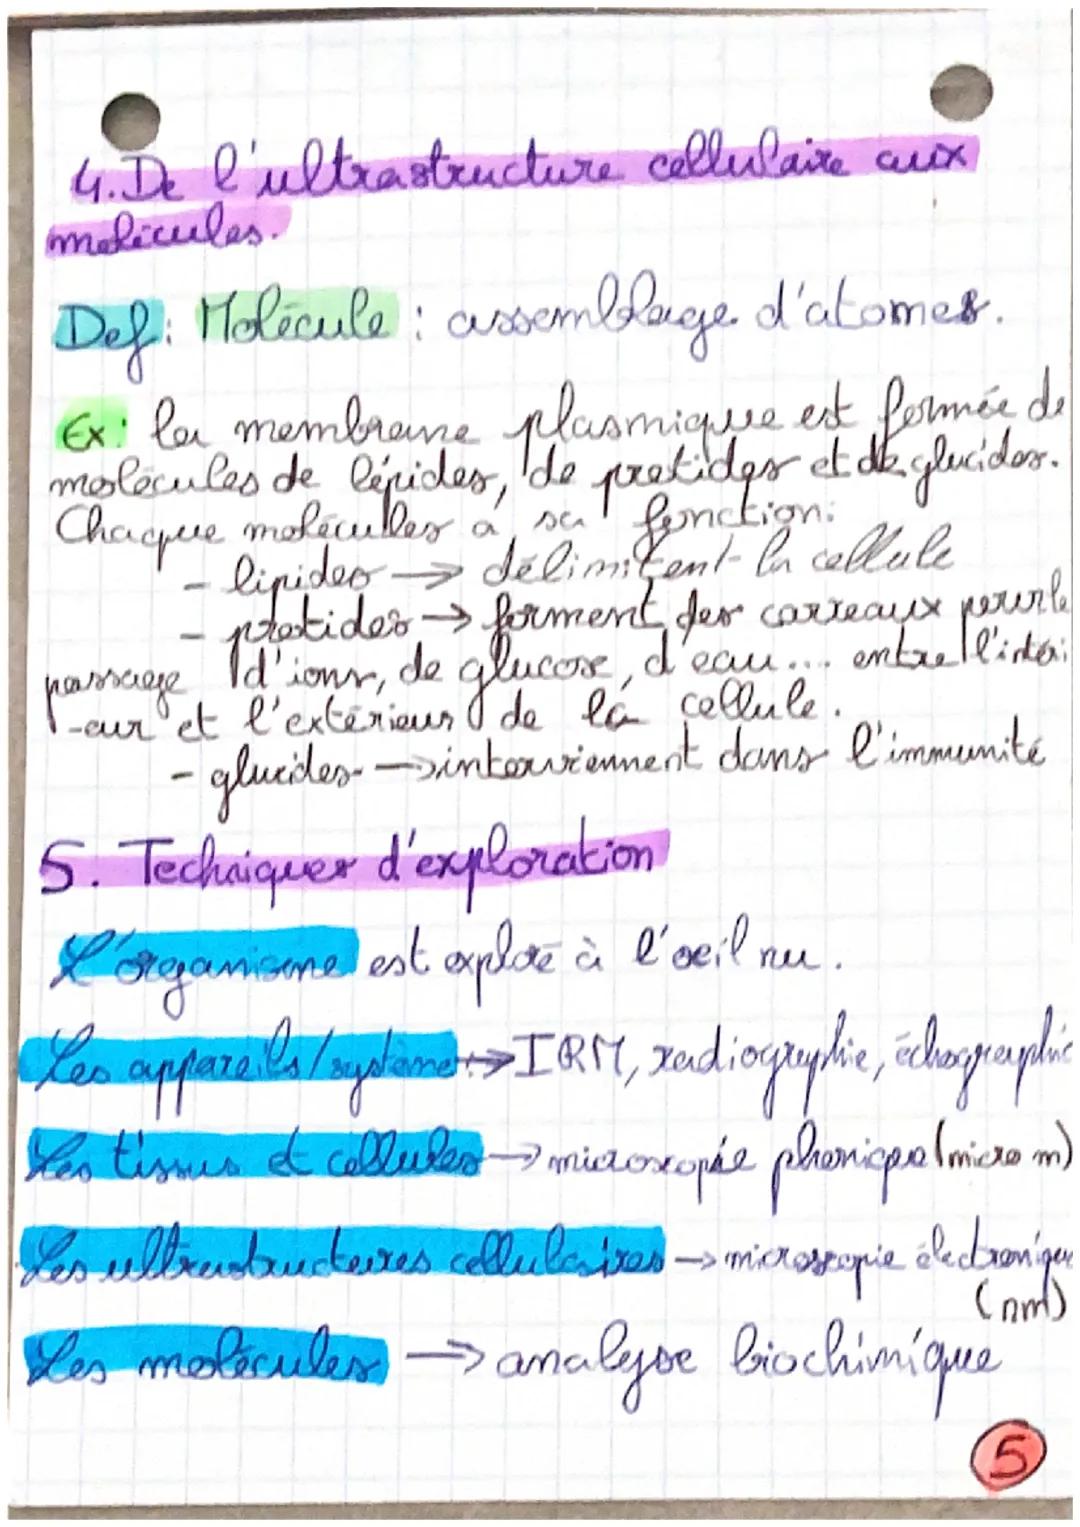 4. De l'ultrastructure cellulaire aux
molécules.
Def: Molécule : assemblage d'atomes.
Ex: la membrane plasmique est formée de
molécules de lipides, de protides et de glucides.
Chaque molécules à sa fonction:
- lipides → délimitent la cellule
- protides → forment des carreaux pour le
passage d'ions, de glucose, d'eau... entre l'intéri
-eur et l'extérieur de la cellule.
- glucides → interviennent dans l'immunité
5. Techniques d'exploration
L'organisme est exploré à l'oeil nu.
Les appareils/système: → IRM, radiographie, échographie
Les tissus et cellules → microscopie (micro m)
Les ultrastructures cellulaires → microscopie électronique
(nm)
Les molécules → analyse biochimique
5